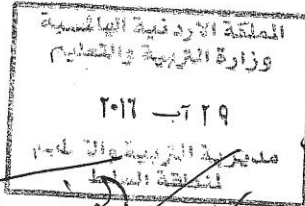 المملكة الاردنية الهاشمية
وزارة التربية والتعليم
٢٩ آب ٢٠١٦
مديرية التربية والتعليم
لمنطقة السلط